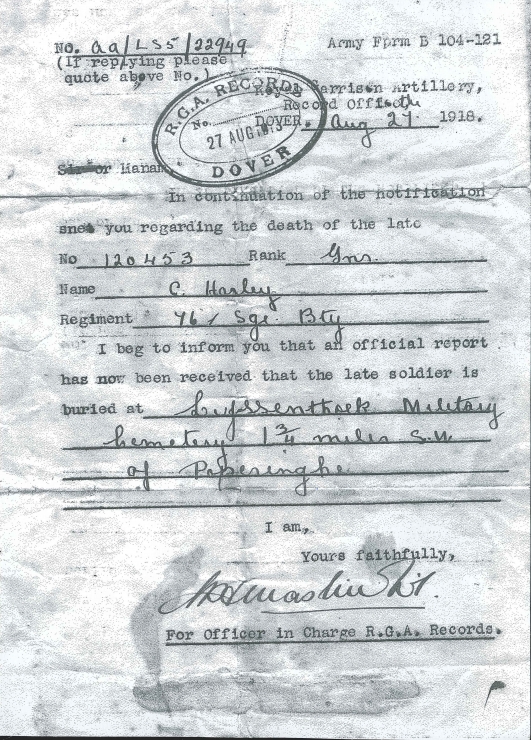 No. aa/LS5/22949
Army Form B 104-121
(If replying please
quote above No.)
Garrison Artillery,
Record Office
DOVER. Aug 27 1918.
R.G.A. RECORDS
No.
27 AUG. 1918
DOVER
Sir or Manam
In continuation of the notification
snet you regarding the death of the late
No 120453 Rank Gnr.
Name C. Harley
Regiment Sge. Bty
I beg to inform you that an official report
has now been received that the late soldier is
buried at Lyssenthoek Military
Cemetery 1¾ miles S.W.
of Poperinghe
I am,
Yours faithfully,
For Officer in Charge R.G.A. Records.